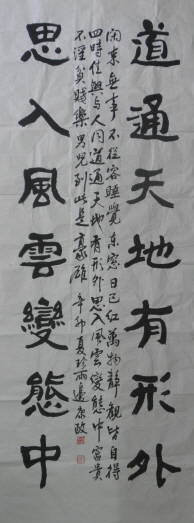 道通天地有形外
闲来無事不從容睡覺東窓日已红萬物静觀皆自得
四時佳興与人同道通天地有形外思入風雲變態中富貴
不淫貧賤樂男児到此是豪雄 辛卯夏珍雨邊康政
思入風雲變態中